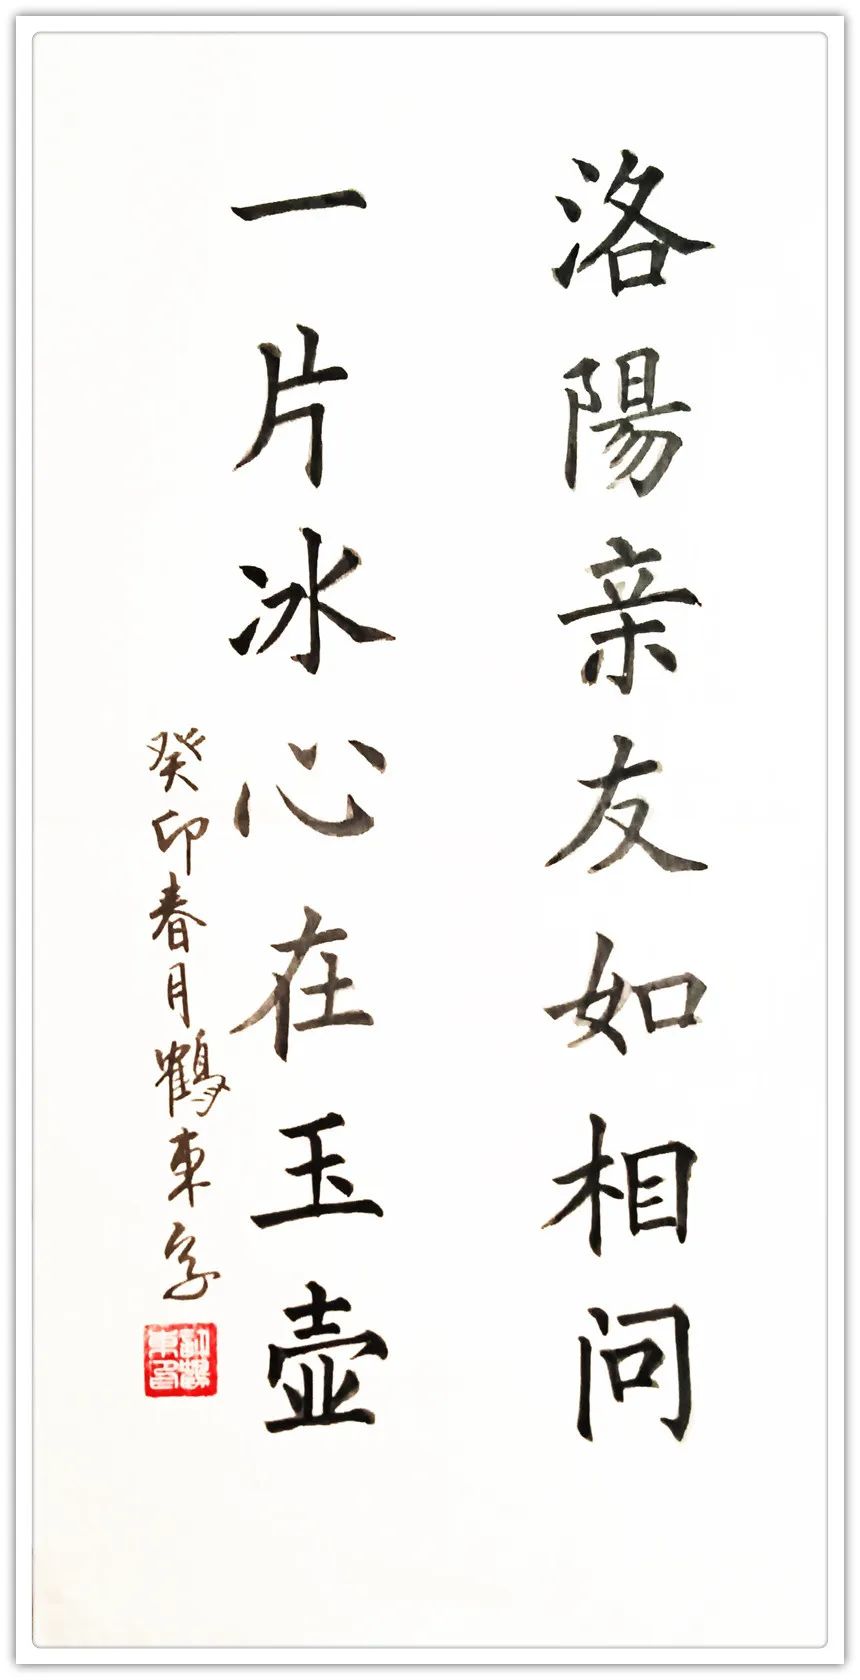 洛陽亲友如相问
一片冰心在玉壶
癸卯春月鶴东字